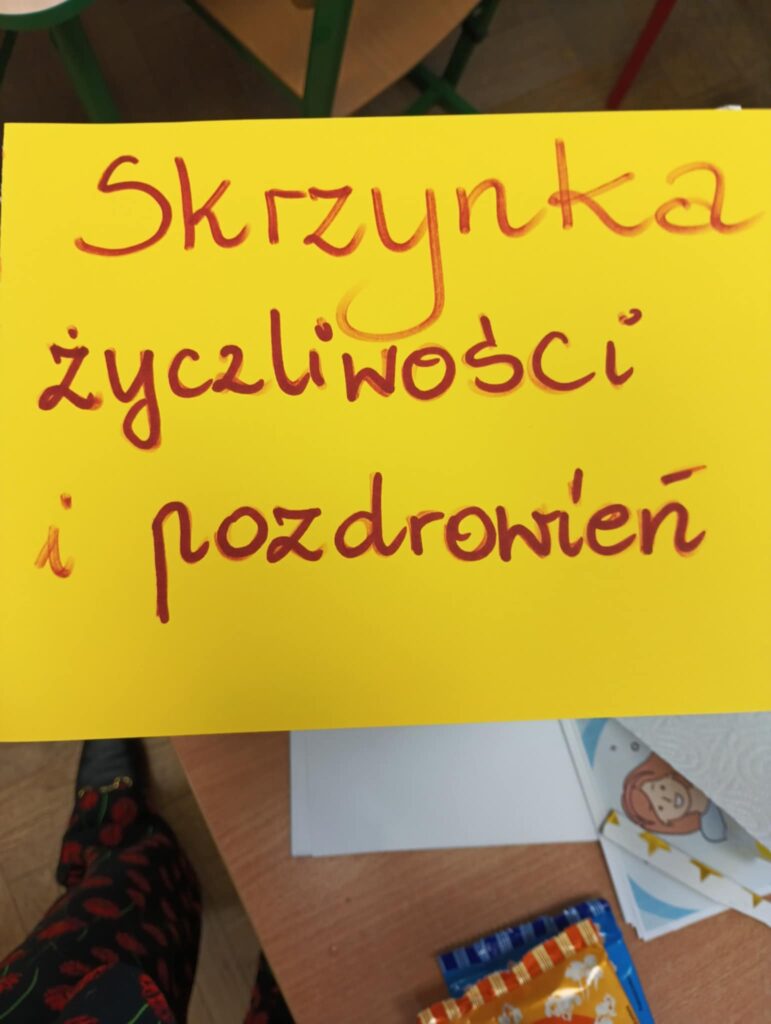 Skrzynka
życzliwości
i pozdrowień